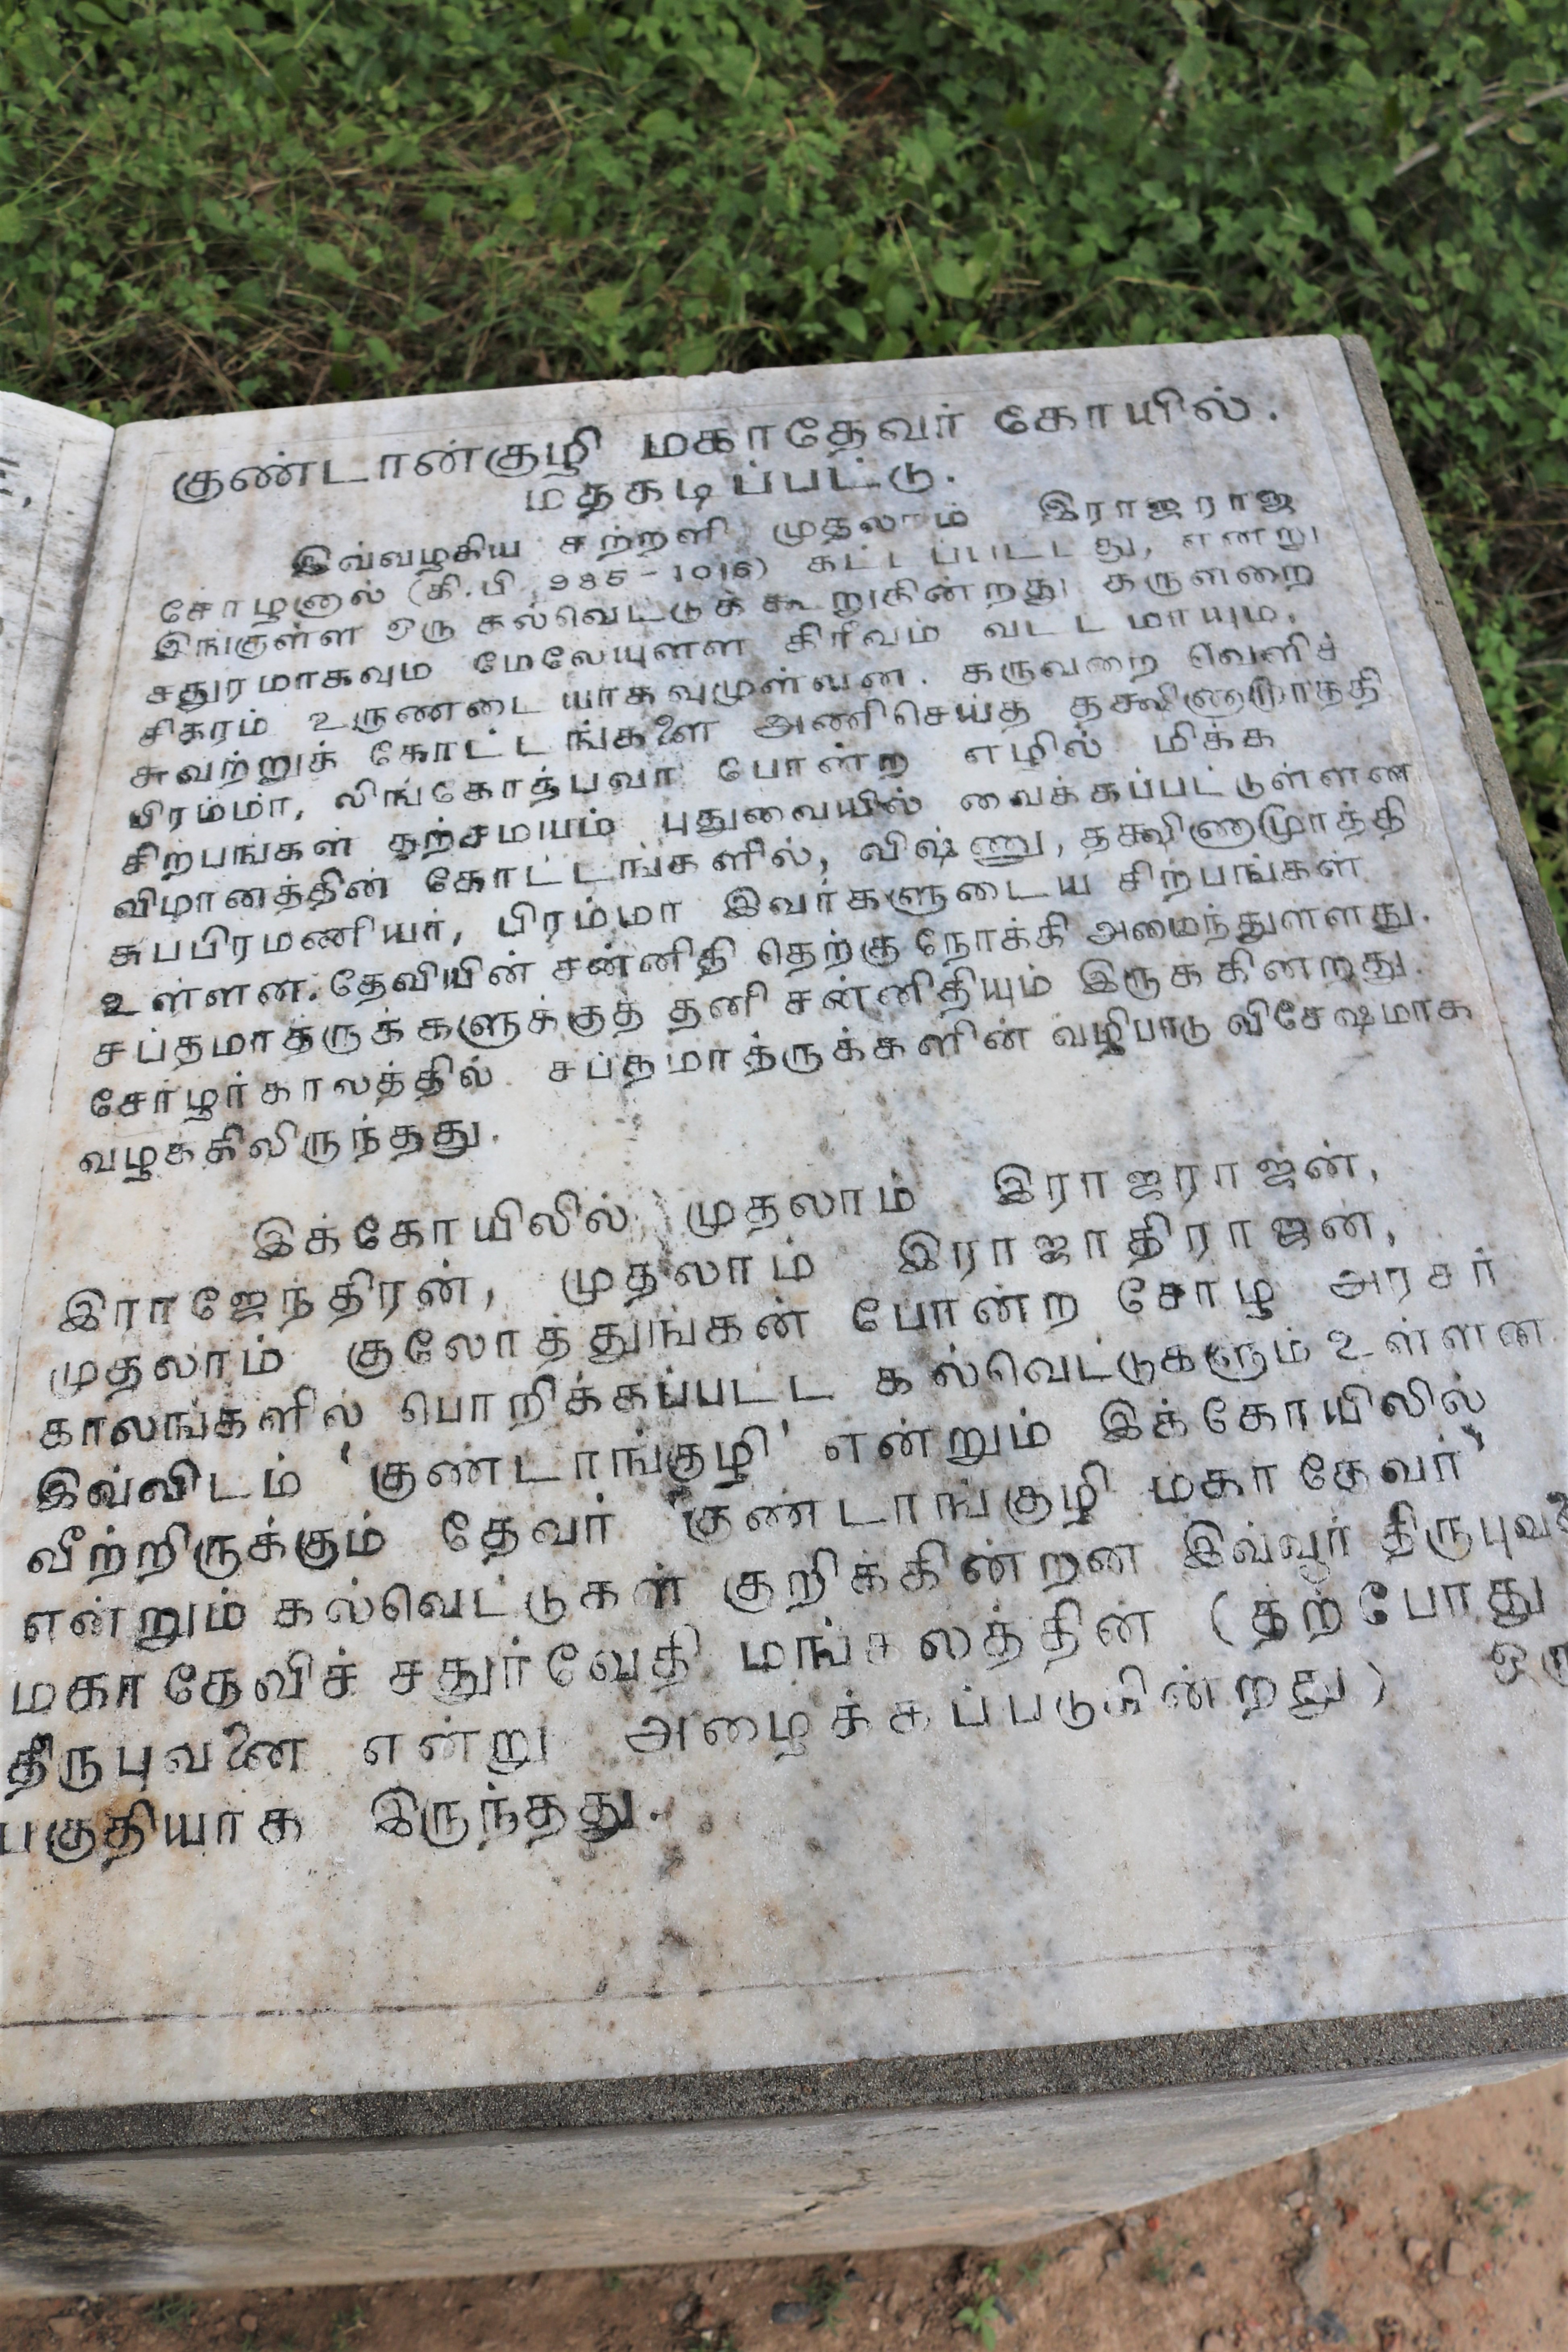 குண்டான்குழி மகாதேவர் கோயில்.
மதகடிப்பட்டு.
இவ்வழகிய சுற்றளி முதலாம் இராஜராஜ
சோழனால் (கி.பி. 985-1016) கட்டப்பட்டது, என்று
இங்குள்ள ஒரு கல்வெட்டுக் கூறுகின்றது கருவறை
சதுரமாகவும் மேலேயுள்ள கிரீவம் வட்டமாயும்,
சிகரம் உருண்டையாகவுமுள்ளன. கருவறை வெளிச்
சுவற்றுக் கோட்டங்களை அணிசெய்த தக்ஷிணாமூர்த்தி
பிரம்மா, லிங்கோத்பவர் போன்ற எழில் மிக்க
சிற்பங்கள் தற்சமயம் புதுவையில் வைக்கப்பட்டுள்ளன
விமானத்தின் கோட்டங்களில், விஷ்ணு, தக்ஷிணாமூர்த்தி
சுப்பிரமணியர், பிரம்மா இவர்களுடைய சிற்பங்கள்
உள்ளன. தேவியின் சன்னிதி தெற்கு நோக்கி அமைந்துள்ளது.
சப்தமாத்ருக்களுக்குத் தனி சன்னிதியும் இருக்கின்றது.
சோழர்காலத்தில் சப்தமாத்ருக்களின் வழிபாடு விசேஷமாக
வழக்கிலிருந்தது.
இக்கோயிலில் முதலாம் இராஜராஜன்,
இராஜேந்திரன், முதலாம் இராஜாதிராஜன்,
முதலாம் குலோத்துங்கன் போன்ற சோழ அரசர்
காலங்களில் பொறிக்கப்பட்ட கல்வெட்டுகளும் உள்ளன
இவ்விடம் 'குண்டாங்குழி' என்றும் இக்கோயிலில்
வீற்றிருக்கும் தேவர் 'குண்டாங்குழி மகாதேவர்'
என்றும் கல்வெட்டுகள் குறிக்கின்றன இவ்வூர்
மகாதேவிச் சதுர்வேதி மங்கலத்தின் (தற்போது
திருபுவனை என்று அழைக்கப்படுகின்றது) ஒரு
பகுதியாக இருந்தது.